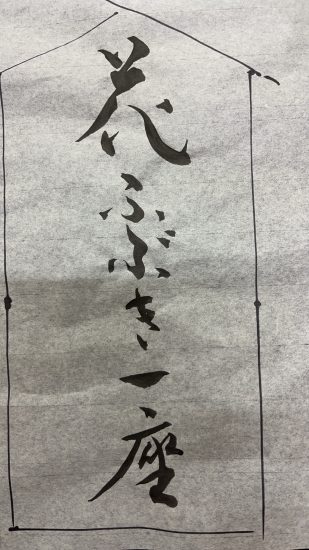 花ふぶき一座